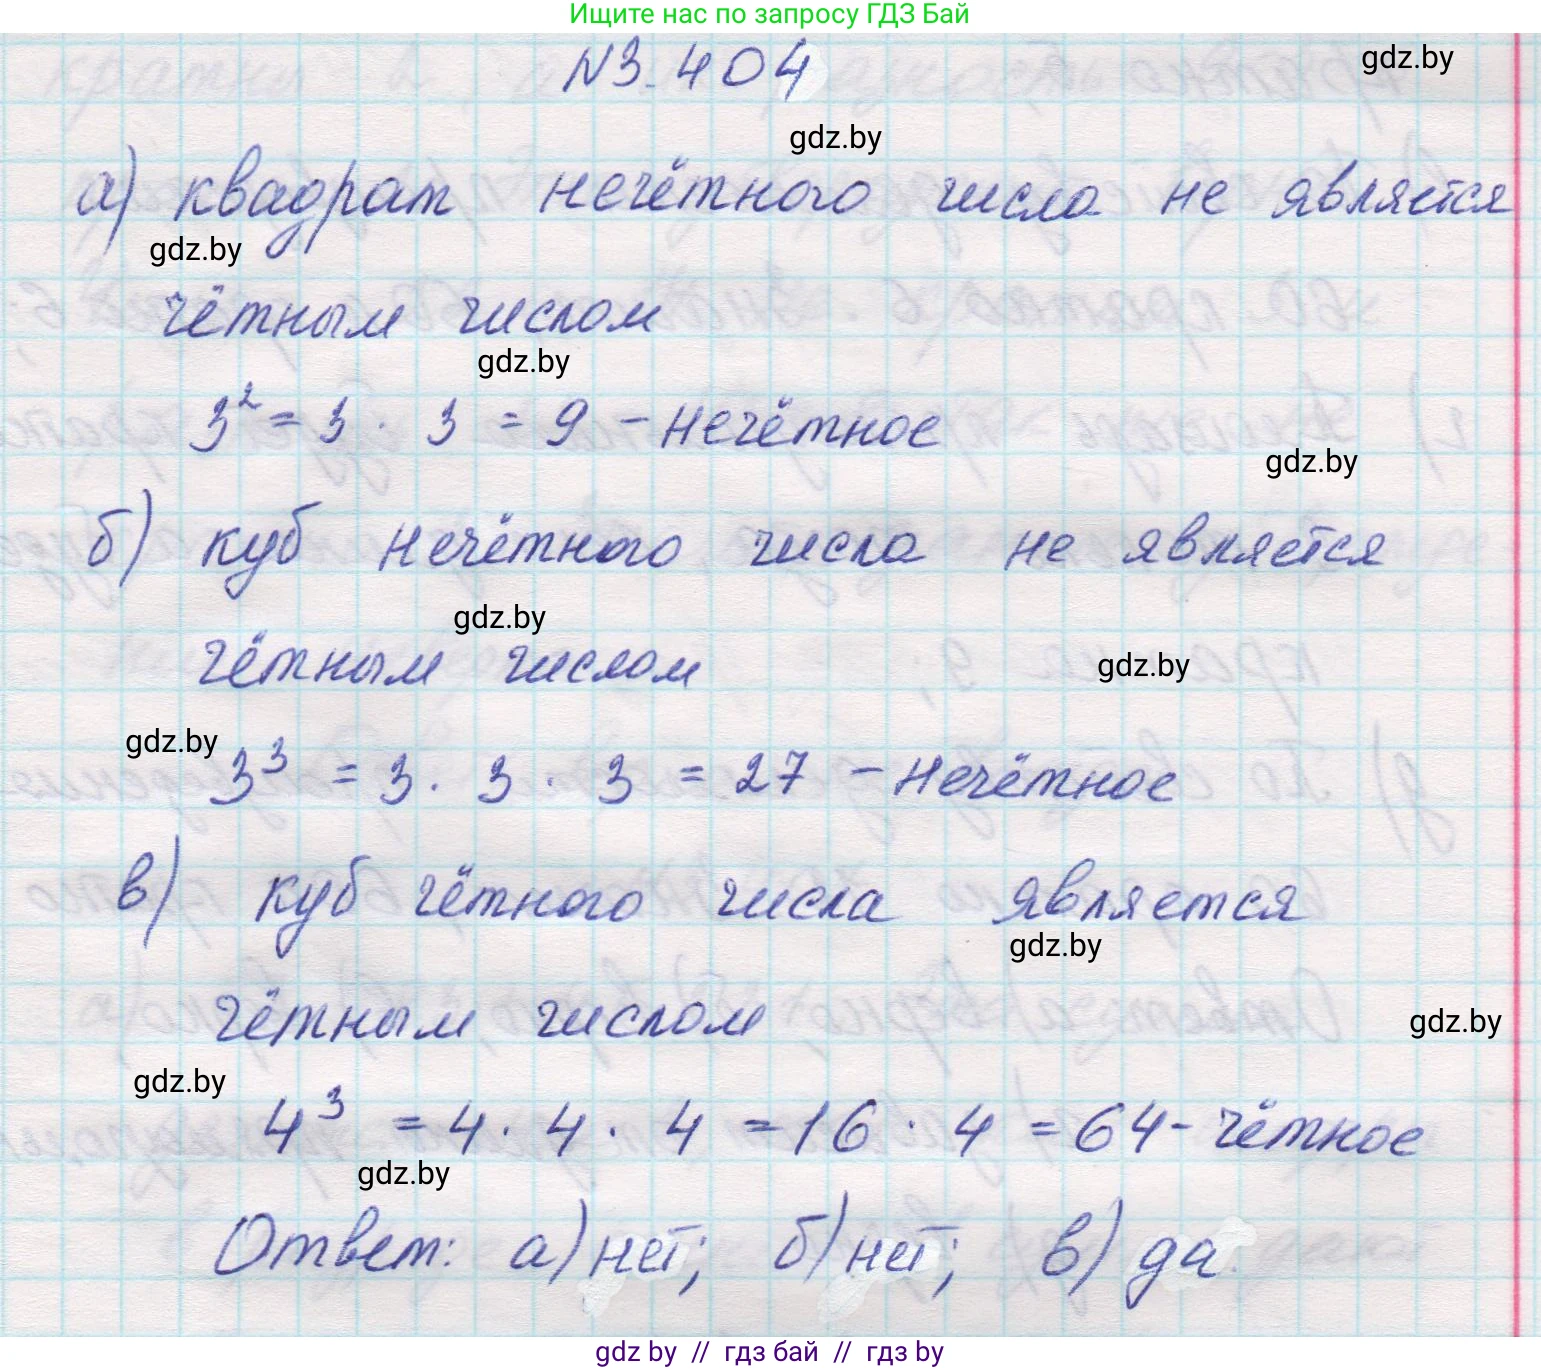 Ищите нас по запросу ГДЗ Бай
N3.404
gdz.by
gdz.by
а) квадрат нечётного числа не является
gdz.by
чётным числом
gdz.by
3² = 3 · 3 = 9 - нечётное
gdz.by
б) куб нечётного числа не является
gdz.by
чётным числом
gdz.by
gdz.by
3³ = 3 · 3 · 3 = 27 - нечётное
в) куб чётного числа является
gdz.by
чётным числом
gdz.by
gdz.by
4³ = 4 · 4 · 4 = 16 · 4 = 64 - чётное
gdz.by
Ответ: а) нет; б) нет; в) да.
gdz by // гдз бай // gdz by